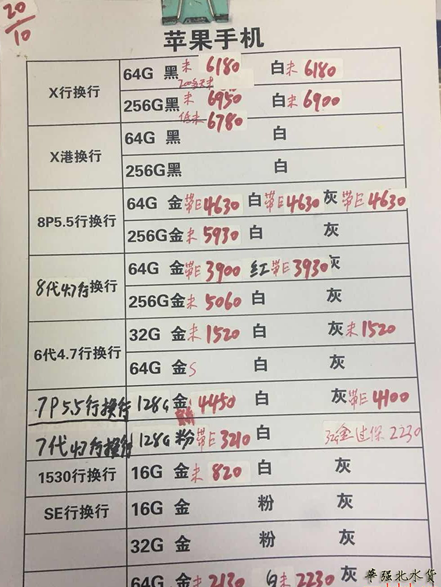 20/10
苹果手机
X行换行 64G 黑 未6180 白 未6180
256G 黑 未6950 白 未6900
低未6780
X港换行 64G 黑 白
256G 黑 白
8P5.5行换行 64G 金 带E4630 白 带E4630 灰 带E4630
256G 金 未5930 白 灰
8代4.7行换行 64G 金 带E3900 红 带E3930 灰
256G 金 未5060 白 灰
6代4.7行换行 32G 金 未1520 白 灰 未1520
64G 金 S 白 灰
7P5.5行换行 128G 金 4450 白 灰 带E4100
7代4.7行换行 128G 粉 带E3210 白 32金过保2230
1530行换行 16G 金 未820 白 灰
SE行换行 16G 金 粉 灰
32G 金 粉 灰
64G 金 未2130 白 未2230 灰
華强北水货